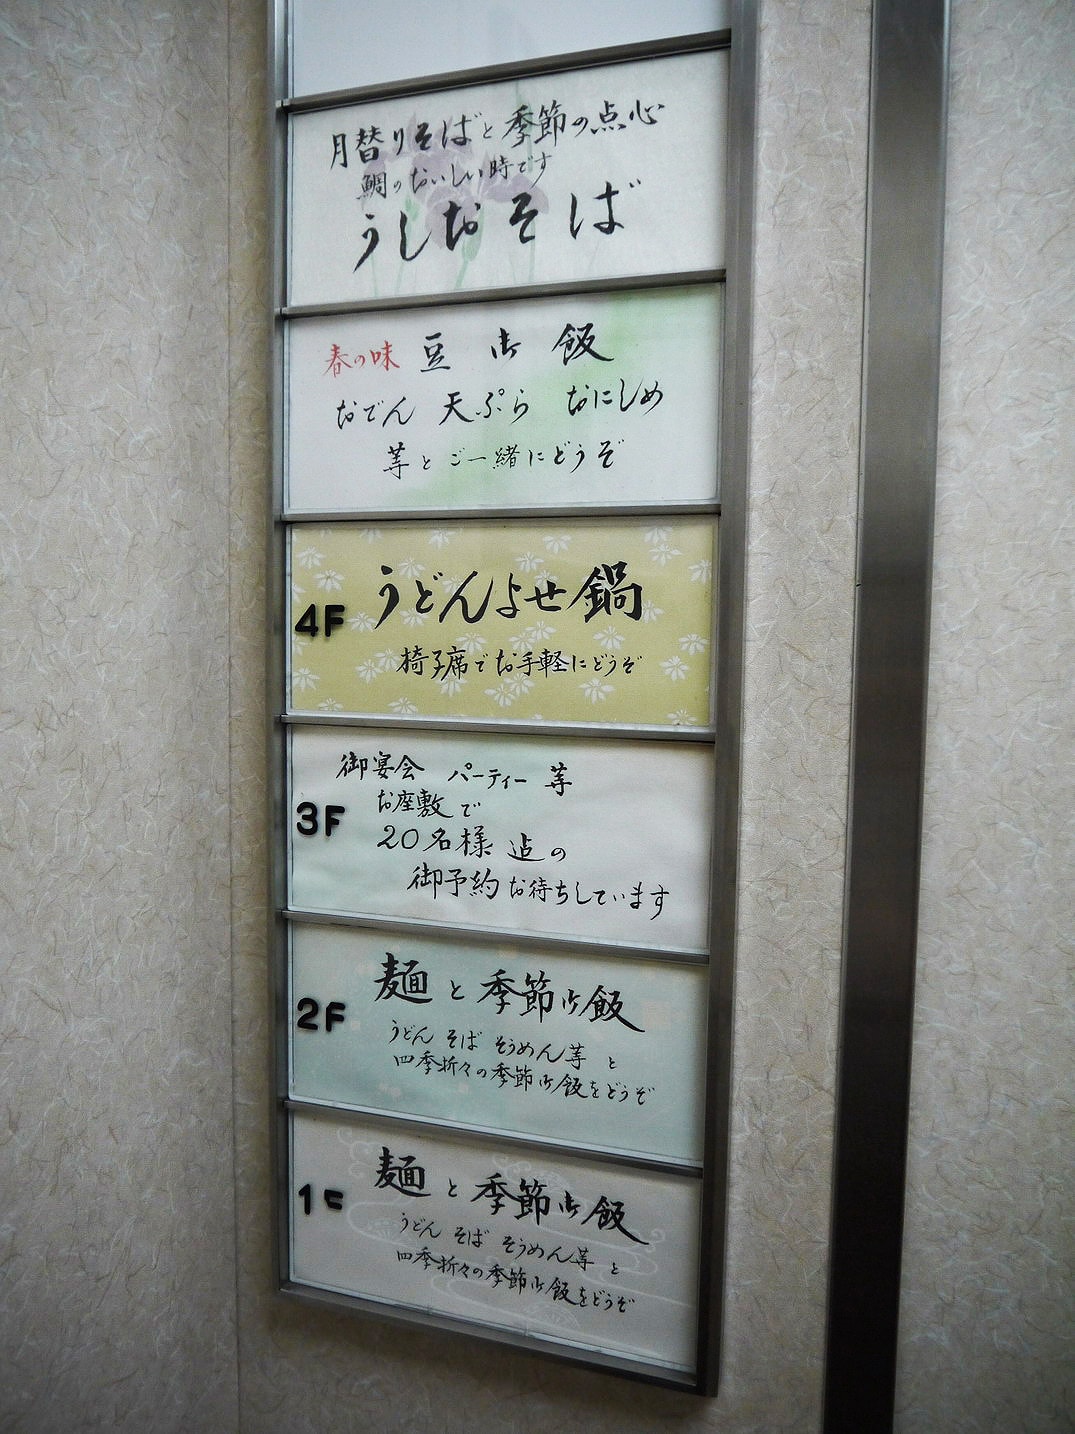 月替りそばと季節の点心
鯛のおいしい時です
うしおそば
春の味 豆御飯
おでん 天ぷら おにしめ
等とご一緒にどうぞ
4F
うどんよせ鍋
椅子席でお手軽にどうぞ
3F
御宴会 パーティー 等
お座敷で
20名様 迠の
御予約お待ちしています
2F
麺と季節御飯
うどん そば そうめん等と
四季折々の季節御飯をどうぞ
1F
麺と季節御飯
うどん そば そうめん等と
四季折々の季節御飯をどうぞ